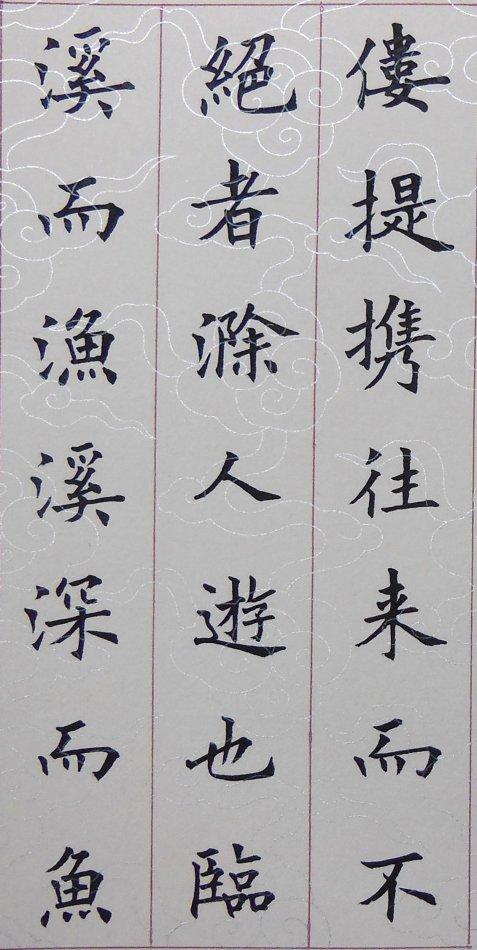 僂提携往来而不
絕者滁人遊也臨
溪而漁溪深而魚